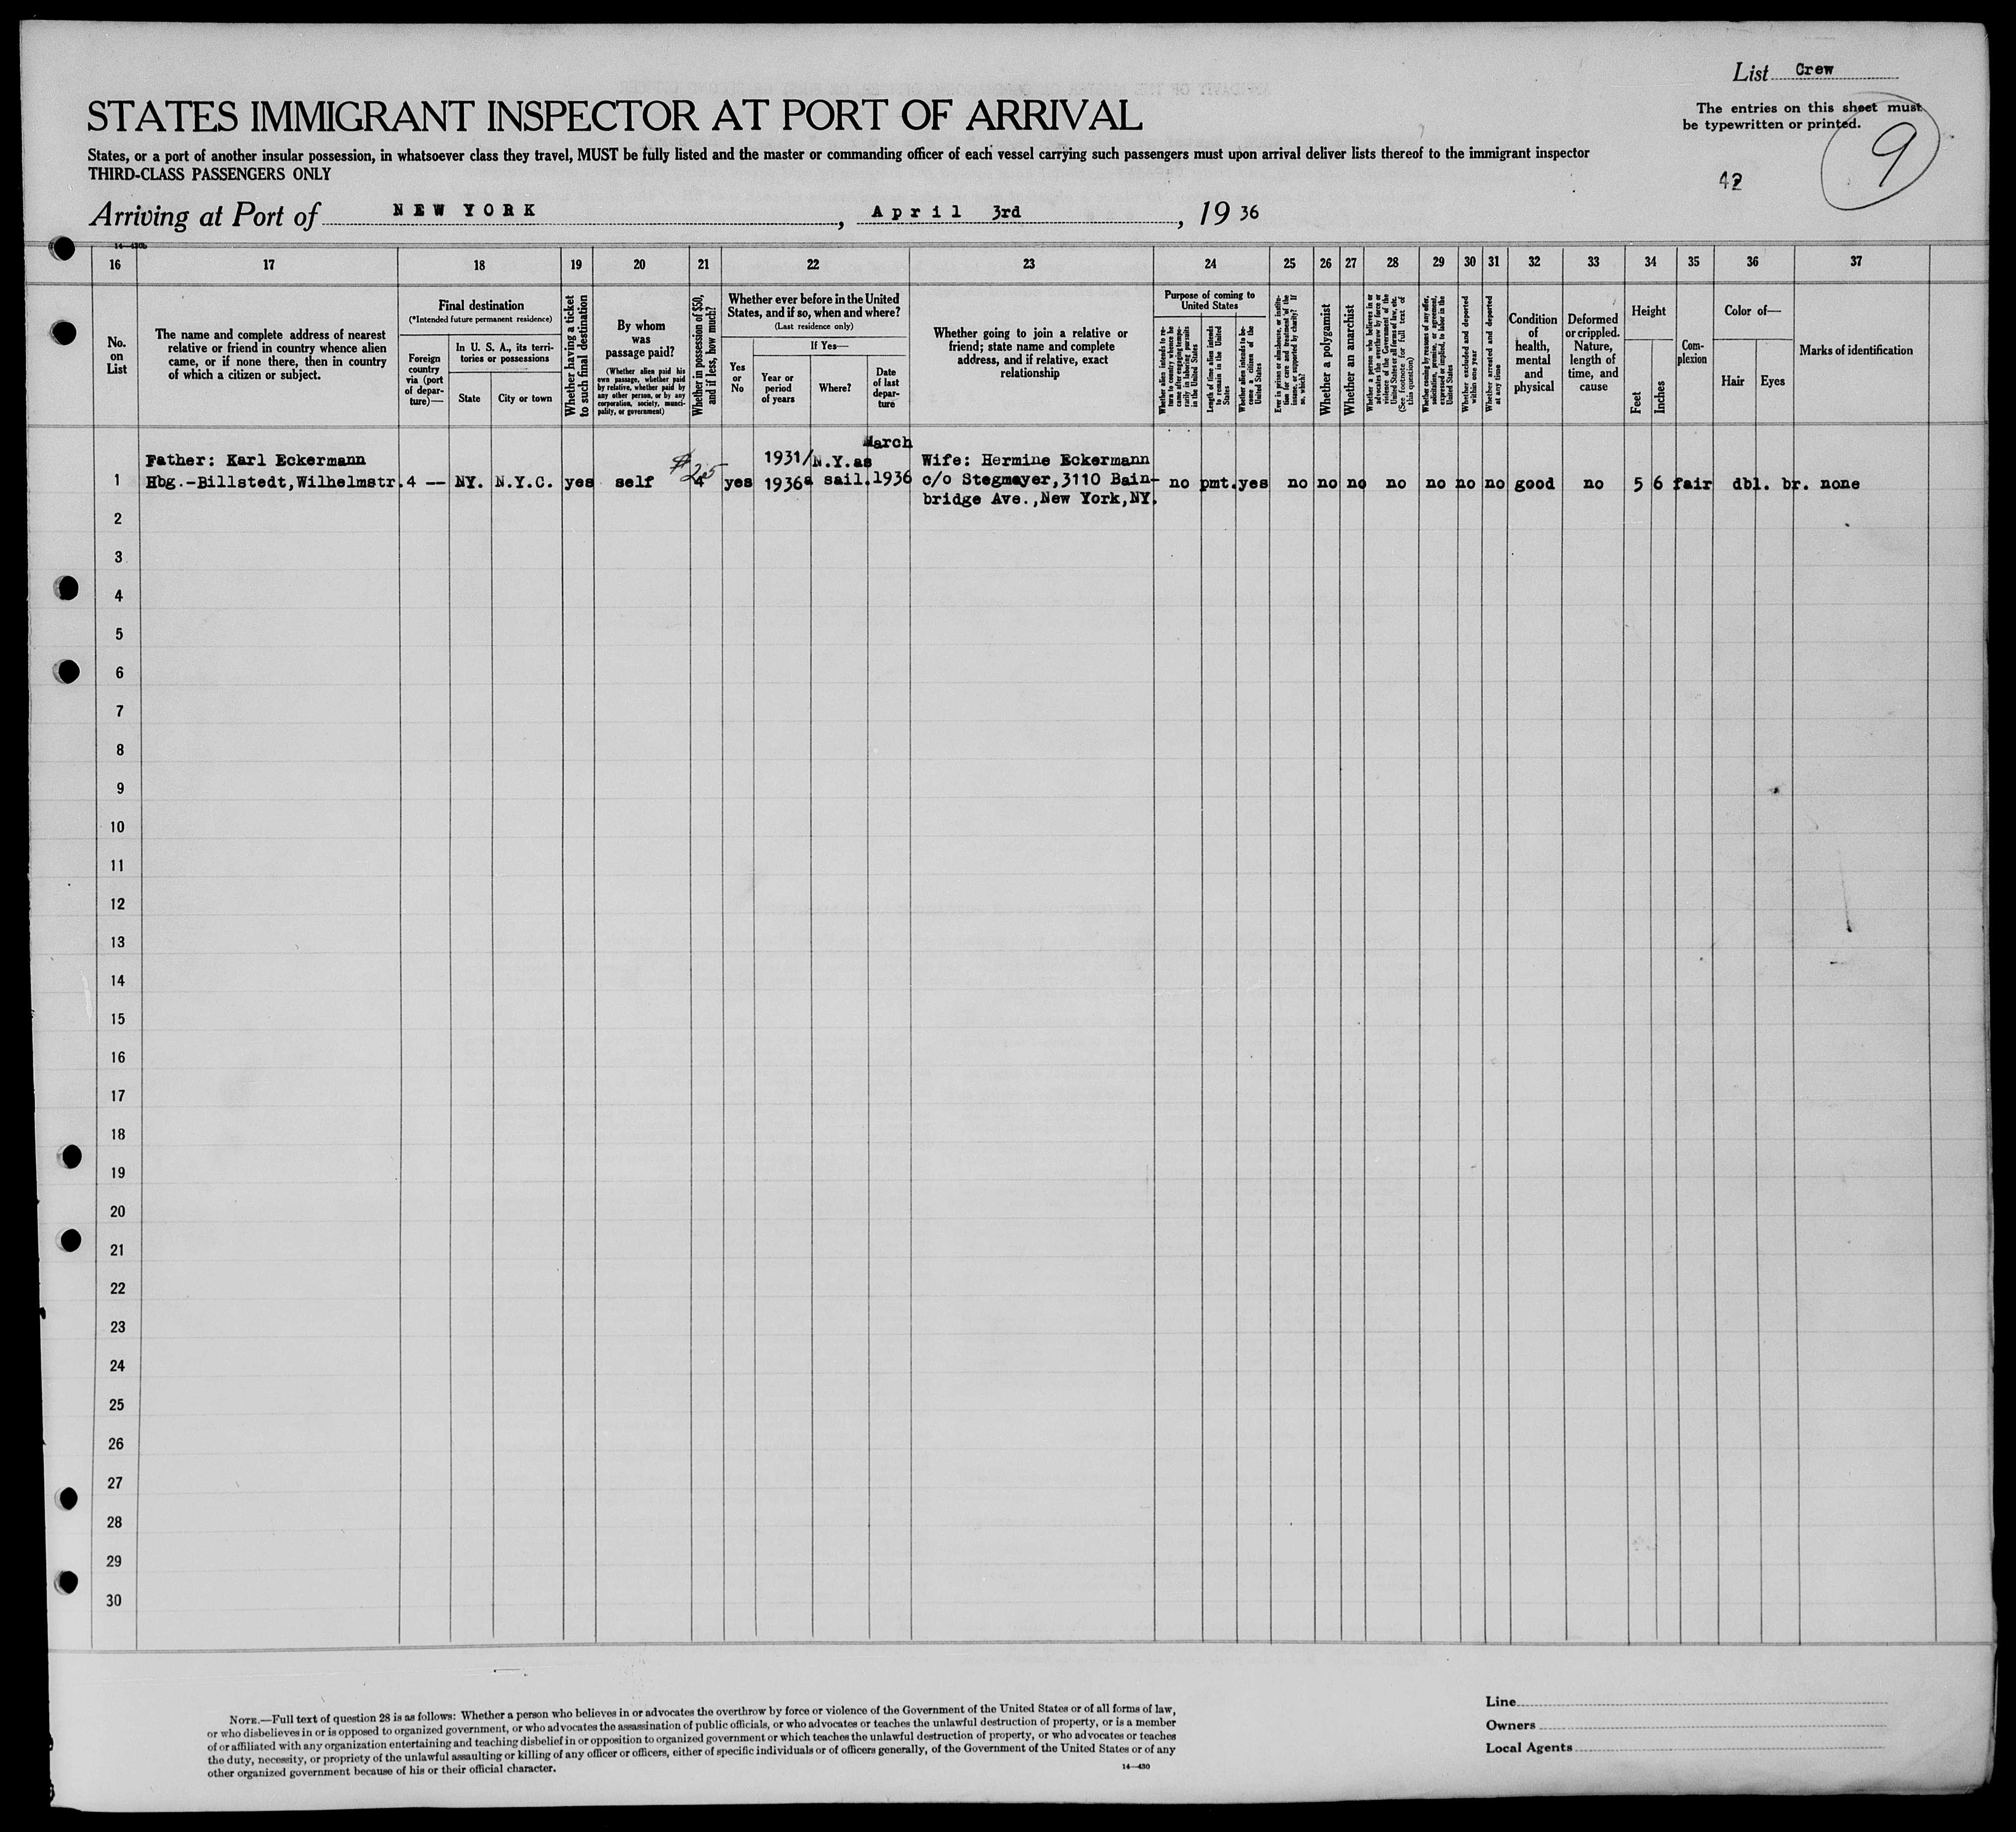 List Crew
STATES IMMIGRANT INSPECTOR AT PORT OF ARRIVAL
The entries on this sheet must
be typewritten or printed.
9
States, or a port of another insular possession, in whatsoever class they travel, MUST be fully listed and the master or commanding officer of each vessel carrying such passengers must upon arrival deliver lists thereof to the immigrant inspector
THIRD-CLASS PASSENGERS ONLY
42
Arriving at Port of NEW YORK, April 3rd, 19 36
14—430b
16 17 18 19 20 21 22 23 24 25 26 27 28 29 30 31 32 33 34 35 36 37
No.
on
List
The name and complete address of nearest
relative or friend in country whence alien
came, or if none there, then in country
of which a citizen or subject.
Final destination
(*Intended future permanent residence)
Foreign
country
via (port
of depar-
ture)—
In U. S. A., its terri-
tories or possessions
State
City or town
Whether having a ticket
to such final destination
By whom
was
passage paid?
(Whether alien paid his
own passage, whether paid
by relative, whether paid by
any other person, or by any
corporation, society, munici-
pality, or government)
Whether in possession of $50,
and if less, how much?
Whether ever before in the United
States, and if so, when and where?
(Last residence only)
Yes
or
No
If Yes—
Year or
period
of years
Where?
Date
of last
depar-
ture
Whether going to join a relative or
friend; state name and complete
address, and if relative, exact
relationship
Purpose of coming to
United States
Whether alien intends to re-
turn to country whence he
came after engaging tempo-
rarily in laboring pursuits
in the United States
Length of time alien intends
to remain in the United
States
Whether alien intends to be-
come a citizen of the
United States
Ever in prison or almshouse, or institu-
tion for care and treatment of the
insane, or supported by charity? If
so, which?
Whether a polygamist
Whether an anarchist
Whether a person who believes in or
advocates the overthrow by force or
violence of the Government of the
United States or all forms of law, etc.
(See footnote for full text of
this question)
Whether coming by reasons of any offer,
solicitation, promise, or agreement,
expressed or implied, to labor in the
United States
Whether excluded and deported
within one year
Whether arrested and deported
at any time
Condition
of
health,
mental
and
physical
Deformed
or crippled.
Nature,
length of
time, and
cause
Height
Feet
Inches
Com-
plexion
Color of—
Hair
Eyes
Marks of identification
March
Father: Karl Eckermann 1931/ N.Y.as Wife: Hermine Eckermann
$25
1 Hbg.-Billstedt,Wilhelmstr.4 -- NY. N.Y.C. yes self yes 1936 a sail. 1936 c/o Stegmayer,3110 Bain- no pmt. yes no no no no no no no good no 5 6 fair dbl. br. none
bridge Ave.,New York,NY.
2
3
4
5
6
7
8
9
10
11
12
13
14
15
16
17
18
19
20
21
22
23
24
25
26
27
28
29
30
NOTE.—Full text of question 28 is as follows: Whether a person who believes in or advocates the overthrow by force or violence of the Government of the United States or of all forms of law,
or who disbelieves in or is opposed to organized government, or who advocates the assassination of public officials, or who advocates or teaches the unlawful destruction of property, or is a member
of or affiliated with any organization entertaining and teaching disbelief in or opposition to organized government or which teaches the unlawful destruction of property, or who advocates or teaches
the duty, necessity, or propriety of the unlawful assaulting or killing of any officer or officers, either of specific individuals or of officers generally, of the Government of the United States or of any
other organized government because of his or their official character.
14—430
Line
Owners
Local Agents